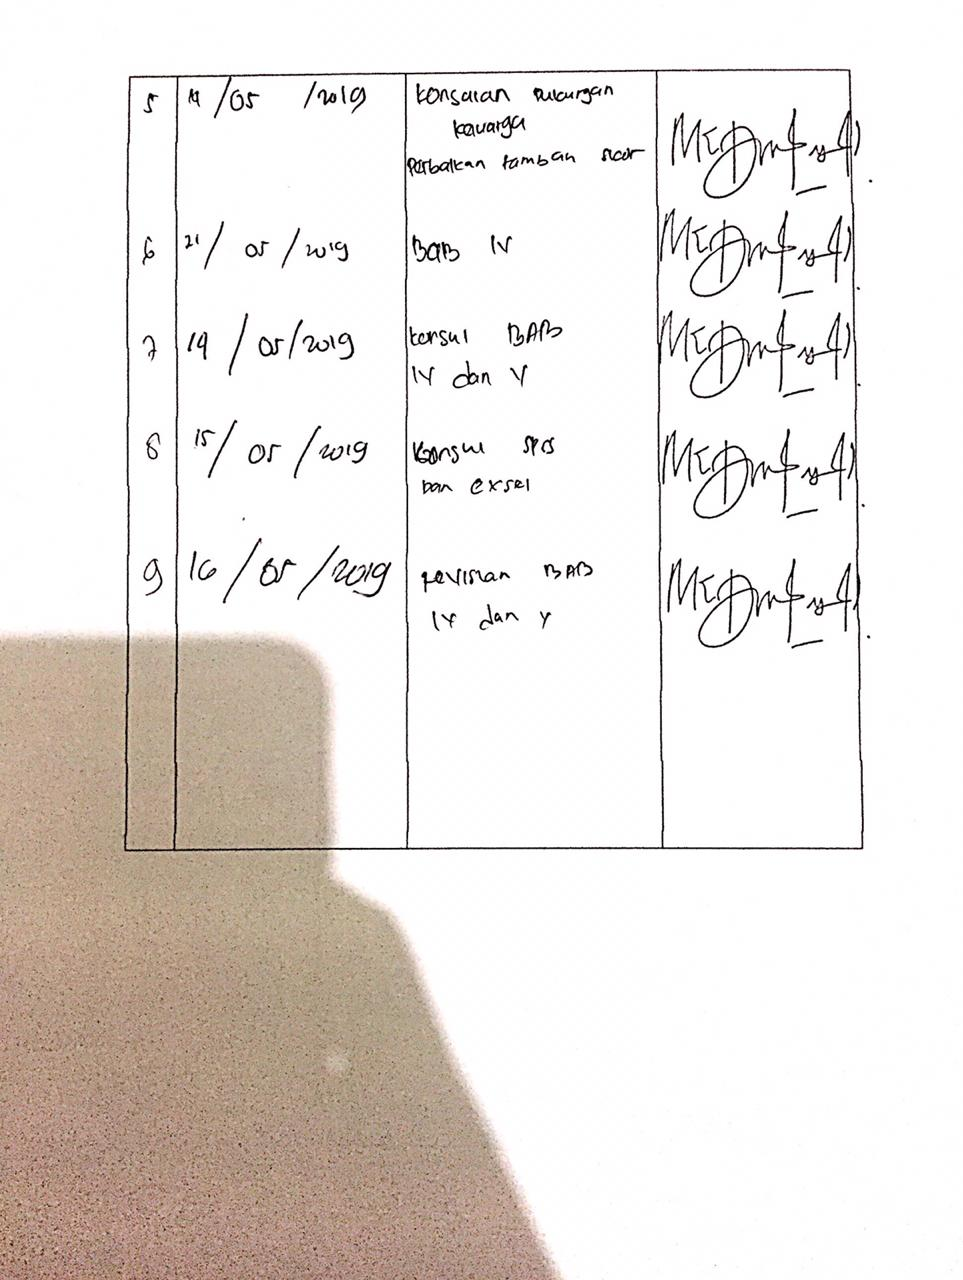 5 19/05/2019 konsulan dukungan
keluarga
perbaikan tambah skor
6 21/05/2019 BAB IV
7 19/05/2019 konsul BAB
IV dan V
8 15/05/2019 konsul SPSS
dan exsel
9 16/05/2019 revisian BAB
IV dan V